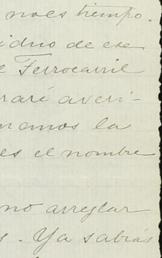 no es tiempo.
iduo de ese
e Ferrocarril
raré averi-
nemos la
es el nombre
no arreglar
s. Ya sabrás